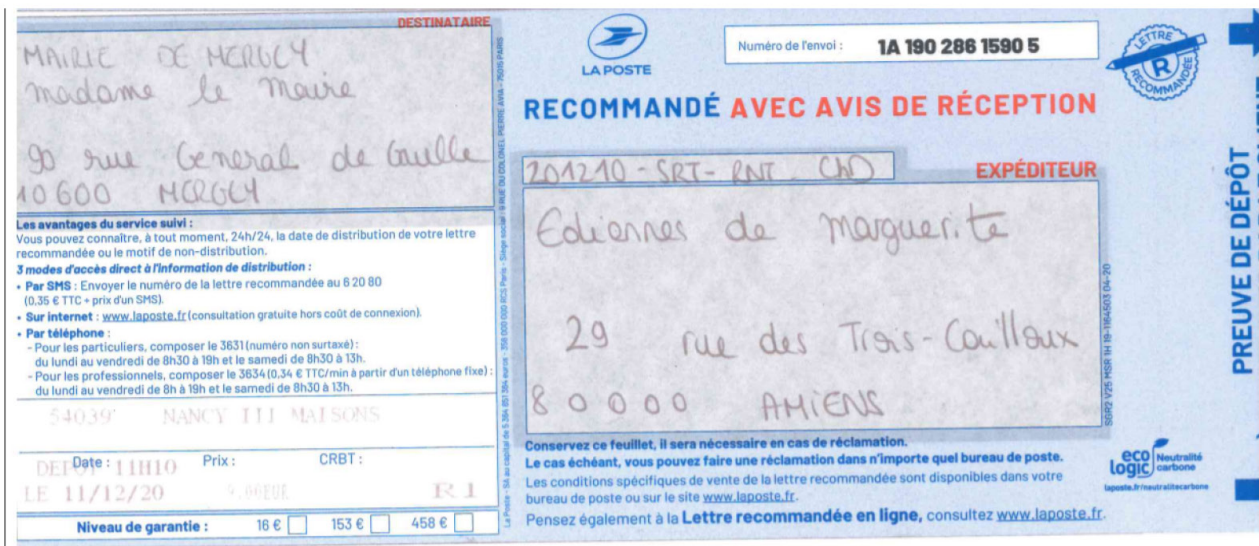 DESTINATAIRE
MAIRIE DE MERGEY
madame le Maire
90 rue General de Gaulle
10600 MERGEY
Les avantages du service suivi :
Vous pouvez connaître, à tout moment, 24h/24, la date de distribution de votre lettre
recommandée ou le motif de non-distribution.
3 modes d'accès direct à l'information de distribution :
• Par SMS : Envoyer le numéro de la lettre recommandée au 6 20 80
(0,35 € TTC + prix d'un SMS).
• Sur internet : www.laposte.fr (consultation gratuite hors coût de connexion).
• Par téléphone :
- Pour les particuliers, composer le 3631 (numéro non surtaxé) :
du lundi au vendredi de 8h30 à 19h et le samedi de 8h30 à 13h.
- Pour les professionnels, composer le 3634 (0,34 € TTC/min à partir d'un téléphone fixe) :
du lundi au vendredi de 8h à 19h et le samedi de 8h30 à 13h.
54039 NANCY III MAISONS
Date : Prix : CRBT :
DEPOT 11H10
LE 11/12/20 R1
Niveau de garantie : 16 € 153 € 458 €
LA POSTE
Numéro de l'envoi : 1A 190 286 1590 5
LETTRE
R
RECOMMANDÉE
RECOMMANDÉ AVEC AVIS DE RÉCEPTION
201210 - SRT - RNT - ChD
EXPÉDITEUR
Eoliennes de Marguerite
29 rue des Trois-Cailloux
80000 AMIENS
Conservez ce feuillet, il sera nécessaire en cas de réclamation.
Le cas échéant, vous pouvez faire une réclamation dans n'importe quel bureau de poste.
Les conditions spécifiques de vente de la lettre recommandée sont disponibles dans votre
bureau de poste ou sur le site www.laposte.fr.
Pensez également à la Lettre recommandée en ligne, consultez www.laposte.fr.
SGR2 V25 MSR 1H 19-1164503 04-20
eco
logic
Neutralité
carbone
laposte.fr/neutralitecarbone
PREUVE DE DÉPÔT